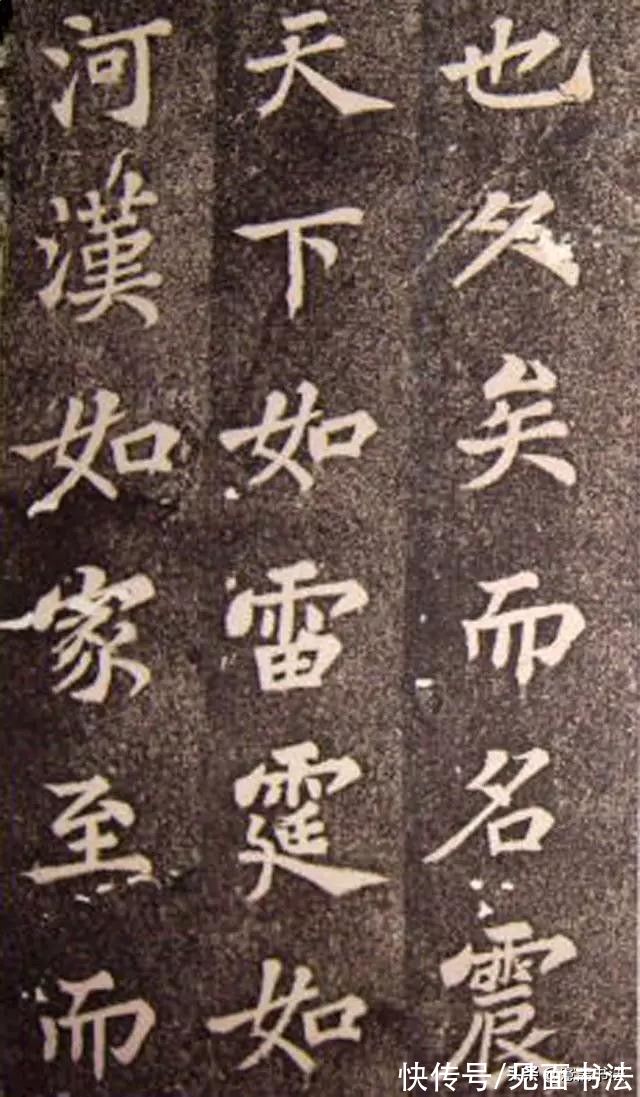 也久矣而名震
天下如雷霆如
河漢如家至而
快传号/见面书法